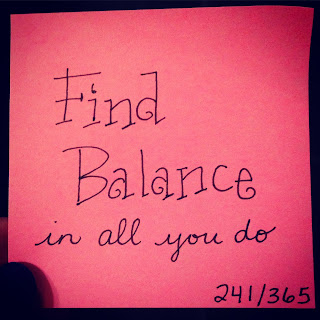 Find
Balance
in all you do
241/365